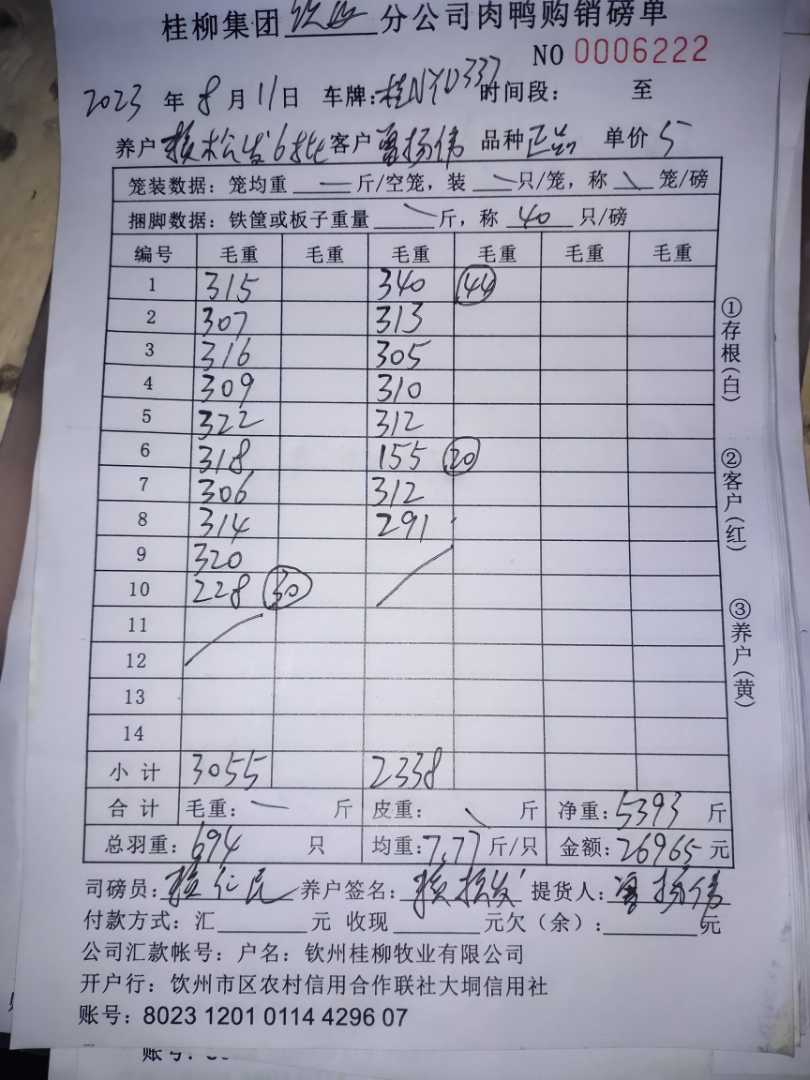 桂柳集团 分公司肉鸭购销磅单
NO 0006222
2023年8月11日 车牌:桂NYD337 时间段: 至
养户 松发6批 客户 扬伟 品种 正品 单价 5
笼装数据:笼均重 — 斤/空笼,装 — 只/笼,称 \ 笼/磅
捆脚数据:铁筐或板子重量 \ 斤,称 40 只/磅
编号 毛重 毛重 毛重 毛重 毛重 毛重
1 315 340 44
2 307 313
3 316 305
4 309 310
5 322 312
6 318 155 20
7 306 312
8 314 291
9 320
10 228 30
11
12
13
14
小计 3055 2338
合计 毛重: — 斤 皮重: \ 斤 净重:5393 斤
总羽重:694 只 均重:7.77斤/只 金额:26965元
司磅员: 仁民 养户签名: 松发 提货人: 扬伟
付款方式:汇 元 收现 元欠(余): 元
公司汇款帐号:户名:钦州桂柳牧业有限公司
开户行:饮州市区农村信用合作联社大垌信用社
账号:8023 1201 0114 4296 07
①存根(白)
②客户(红)
③养户(黄)
账号: